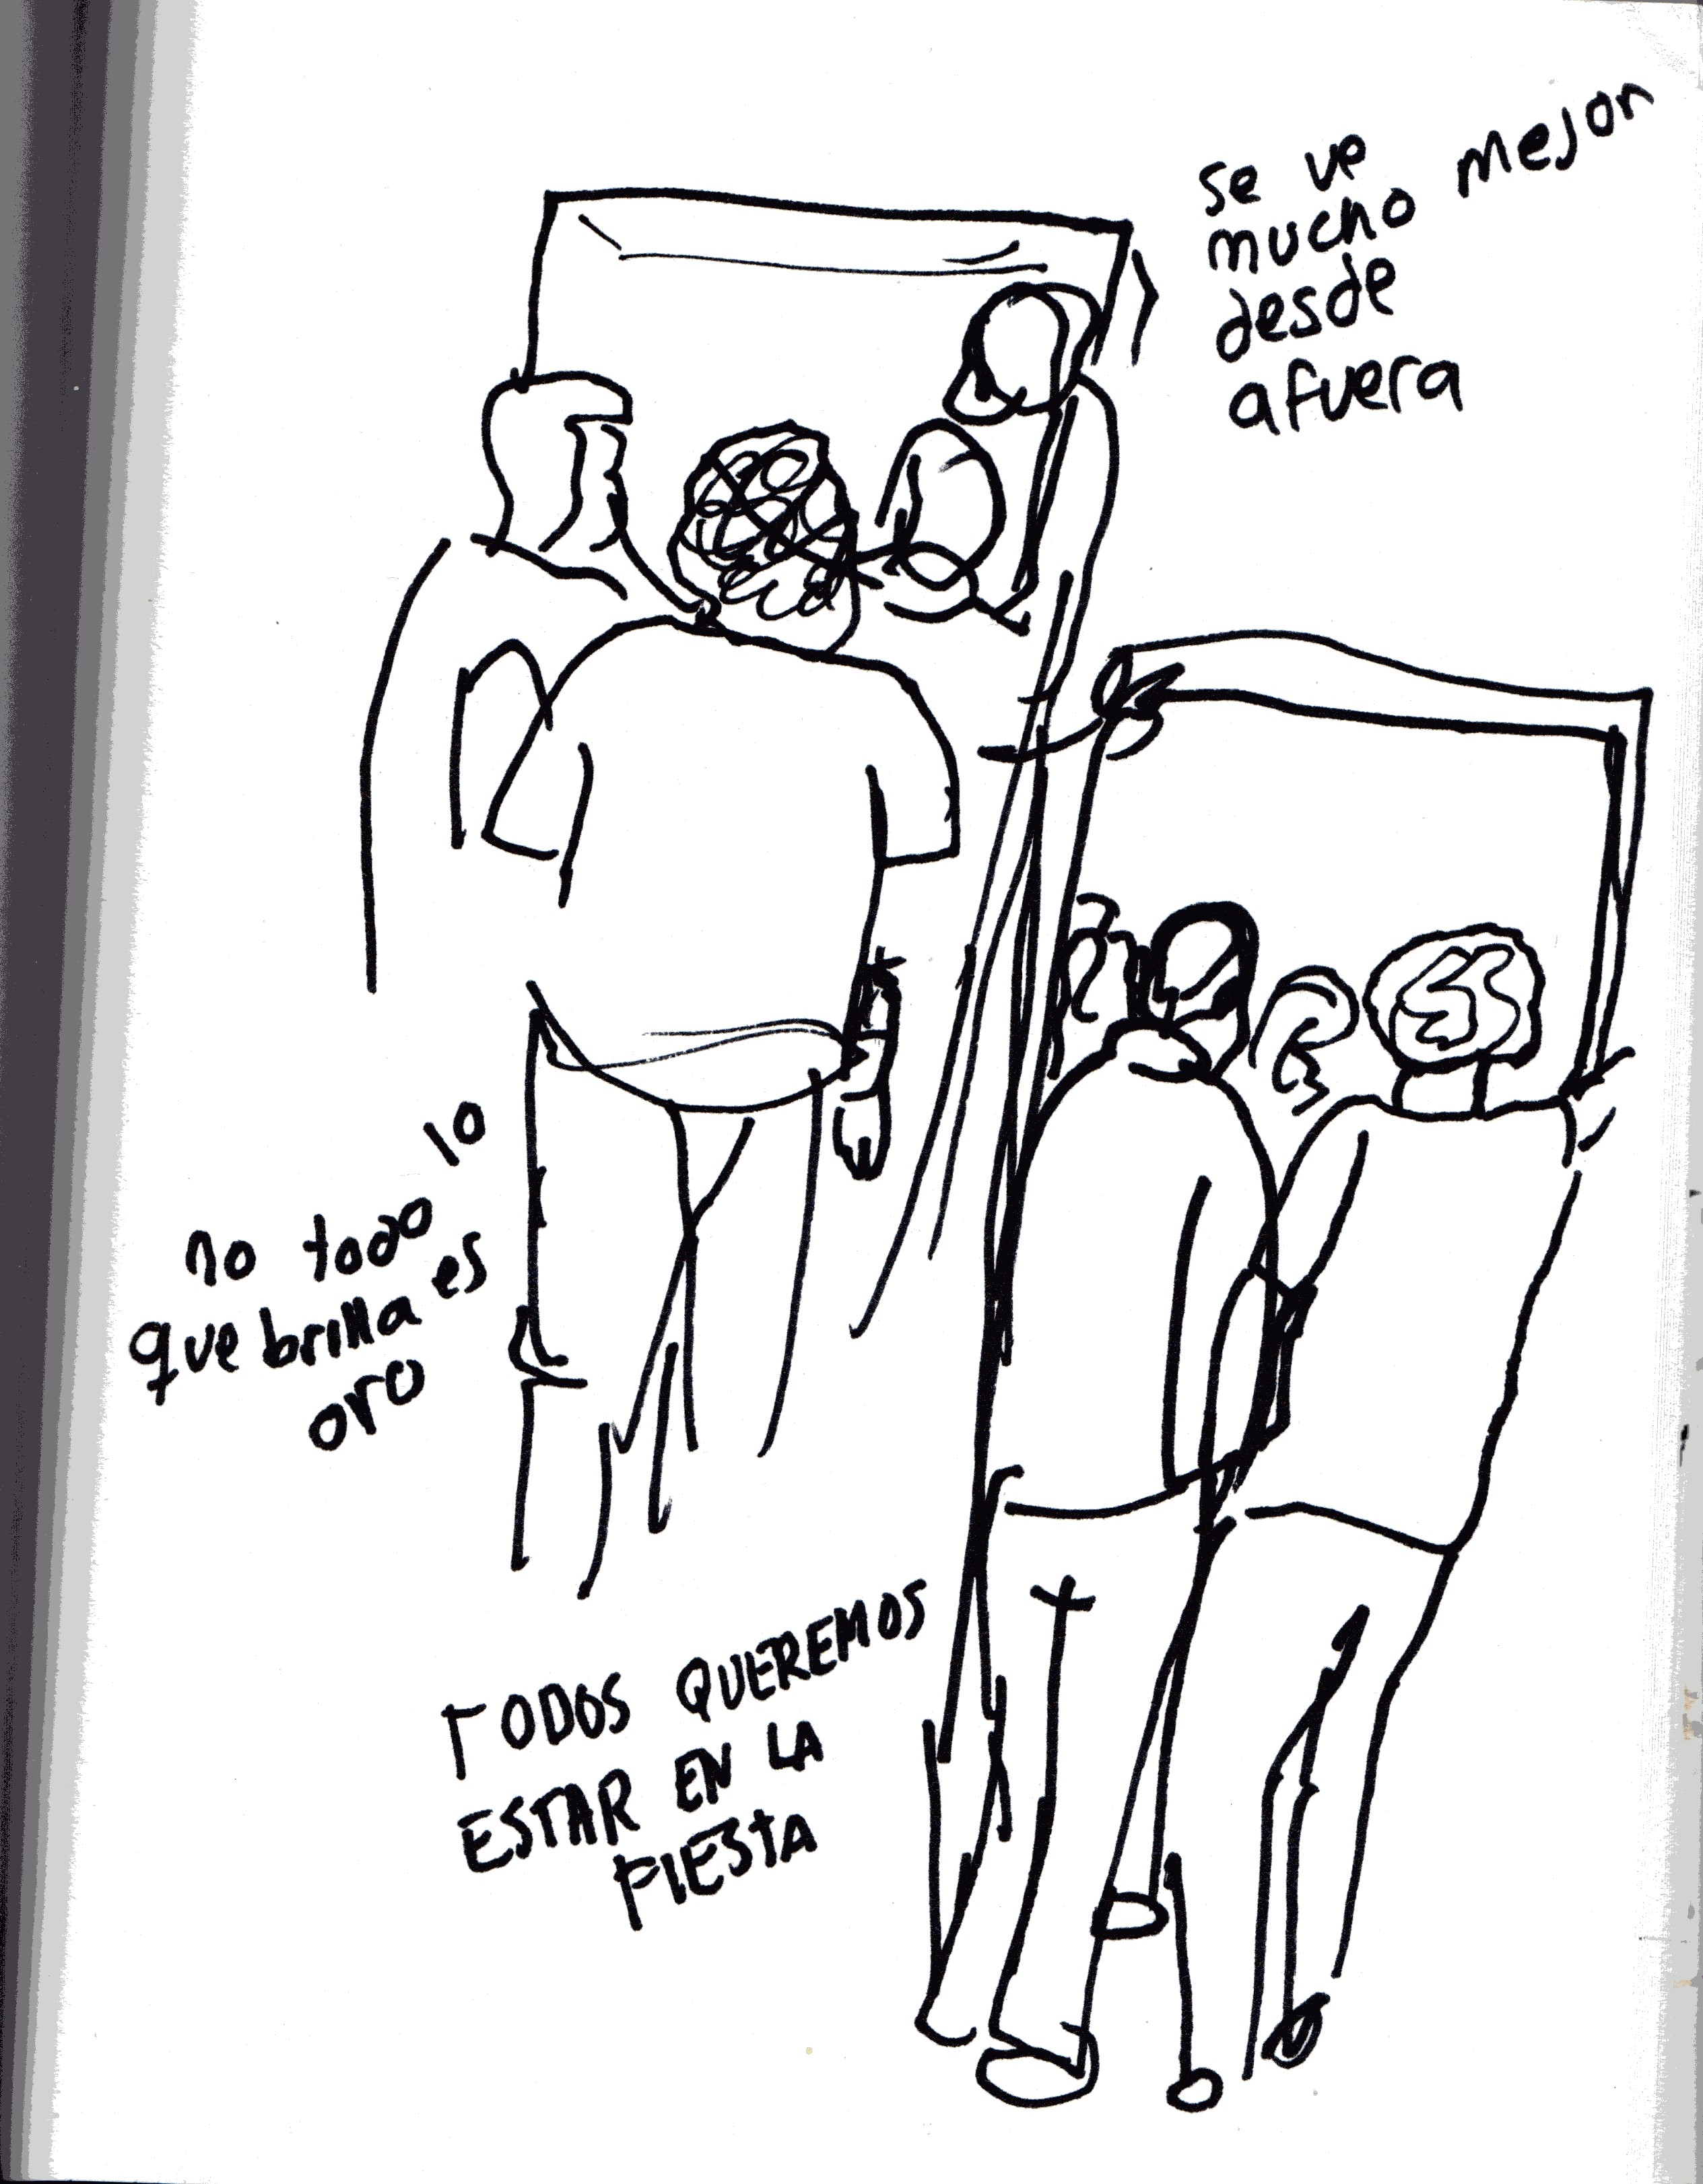 se ve
mucho mejor
desde
afuera
no todo lo
que brilla es
oro
TODOS QUEREMOS
ESTAR EN LA
FIESTA